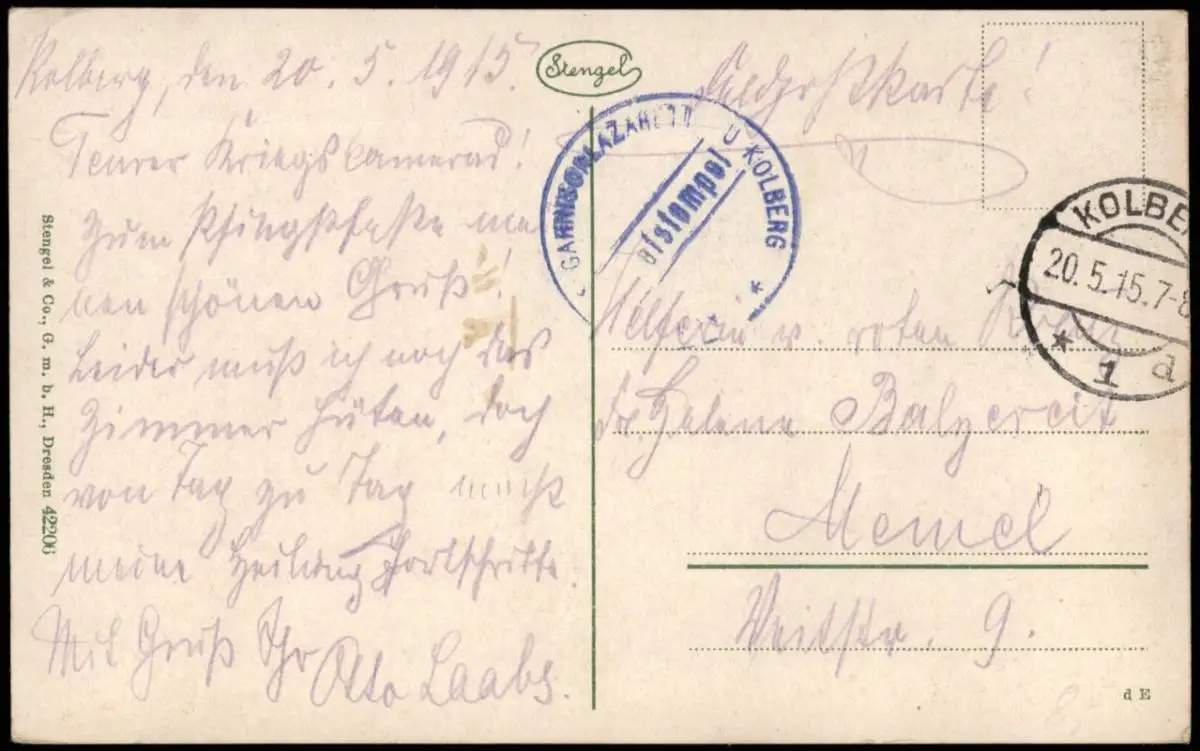 Kolberg, den 20. 5. 1915.
Teurer Kriegskamerad!
Zum Pfingstfeste mei-
nen schönen Gruß!
Leider muß ich noch das
Zimmer hüten, doch
von Tag zu Tag macht
meine Heilung Fortschritte.
Mit Gruß Ihr
Otto Laabs.
Stengel
Stengel & Co., G. m. b. H., Dresden 42206
Feldpostkarte!
GARNISONLAZARETT KOLBERG
Helferin v. roten Kreuz
Helene Balzereit
Memel
Veitstr. 9.
KOLBE
20.5.15.7-8
* 1 d
d E